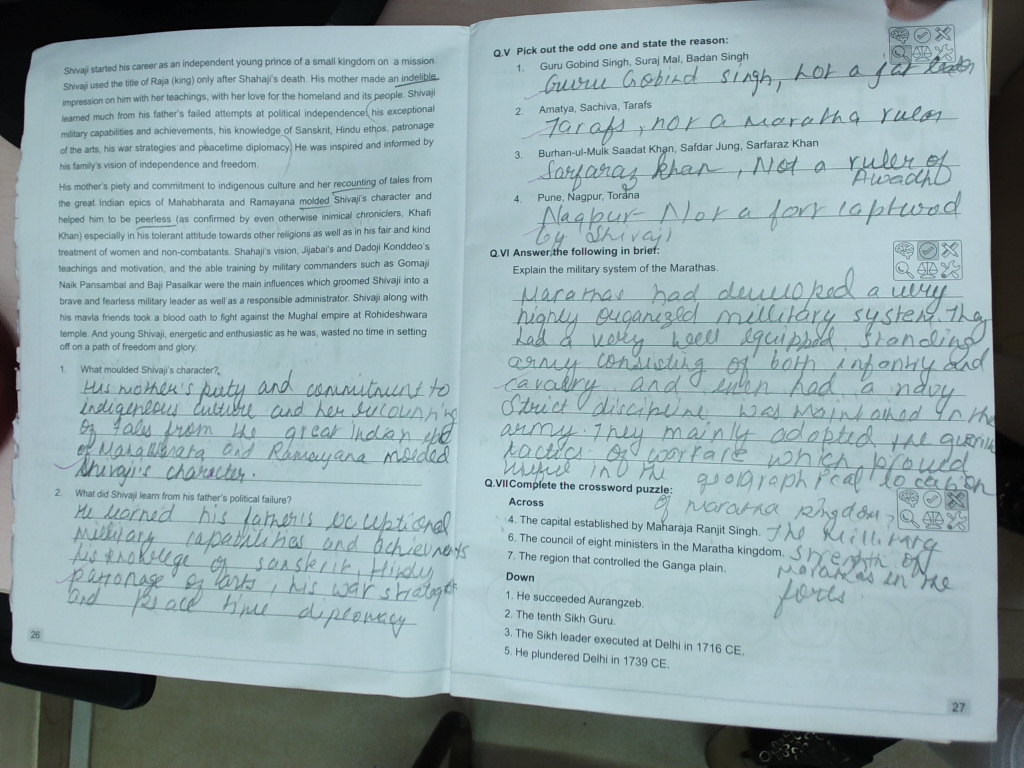 Shivaji started his career as an independent young prince of a small kingdom on a mission.
Shivaji used the title of Raja (king) only after Shahaji's death. His mother made an indelible
impression on him with her teachings, with her love for the homeland and its people. Shivaji
learned much from his father's failed attempts at political independence, his exceptional
military capabilities and achievements, his knowledge of Sanskrit, Hindu ethos, patronage
of the arts, his war strategies and peacetime diplomacy. He was inspired and informed by
his family's vision of independence and freedom.
His mother's piety and commitment to indigenous culture and her recounting of tales from
the great Indian epics of Mahabharata and Ramayana molded Shivaji's character and
helped him to be peerless (as confirmed by even otherwise inimical chroniclers, Khafi
Khan) especially in his tolerant attitude towards other religions as well as in his fair and kind
treatment of women and non-combatants. Shahaji's vision, Jijabai's and Dadoji Konddeo's
teachings and motivation, and the able training by military commanders such as Gomaji
Naik Pansambal and Baji Pasalkar were the main influences which groomed Shivaji into a
brave and fearless military leader as well as a responsible administrator. Shivaji along with
his mavla friends took a blood oath to fight against the Mughal empire at Rohideshwara
temple. And young Shivaji, energetic and enthusiastic as he was, wasted no time in setting
off on a path of freedom and glory.
1. What moulded Shivaji's character?
His mother's piety and commitment to
indigeneous culture and her recounting
of tales from the great indian
of Mahabharata and Ramayana molded
Shivaji's character.
2. What did Shivaji learn from his father's political failure?
He learned his father's exceptional
military capabilities and
his knowledge of sanskrit, Hindu
patronage of arts, his war
and peace time diplomacy
26
Q.V Pick out the odd one and state the reason:
1. Guru Gobind Singh, Suraj Mal, Badan Singh
Guru Gobind Singh, not a jat leader
2. Amatya, Sachiva, Tarafs
Tarafs, not a maratha ruler
3. Burhan-ul-Mulk Saadat Khan, Safdar Jung, Sarfaraz Khan
Sarfaraz Khan, Not a ruler of
Awadh
4. Pune, Nagpur, Torana
Nagpur Not a fort captured
by Shivaji
Q.VI Answer the following in brief:
Explain the military system of the Marathas.
Marathas had developed a very
highly organized millitary system. They
had a very well equipped, standing
army consisting of both infantry and
cavalry and even had a navy
Strict discipline was maintained in the
army. They mainly adopted the
tactics of warfare which proved
in the geographical location
of Maratha kingdom,
The Millitary
strength of
Marathas in the
forts.
Q.VII Complete the crossword puzzle:
Across
4. The capital established by Maharaja Ranjit Singh.
6. The council of eight ministers in the Maratha kingdom.
7. The region that controlled the Ganga plain.
Down
1. He succeeded Aurangzeb.
2. The tenth Sikh Guru.
3. The Sikh leader executed at Delhi in 1716 CE.
5. He plundered Delhi in 1739 CE.
27